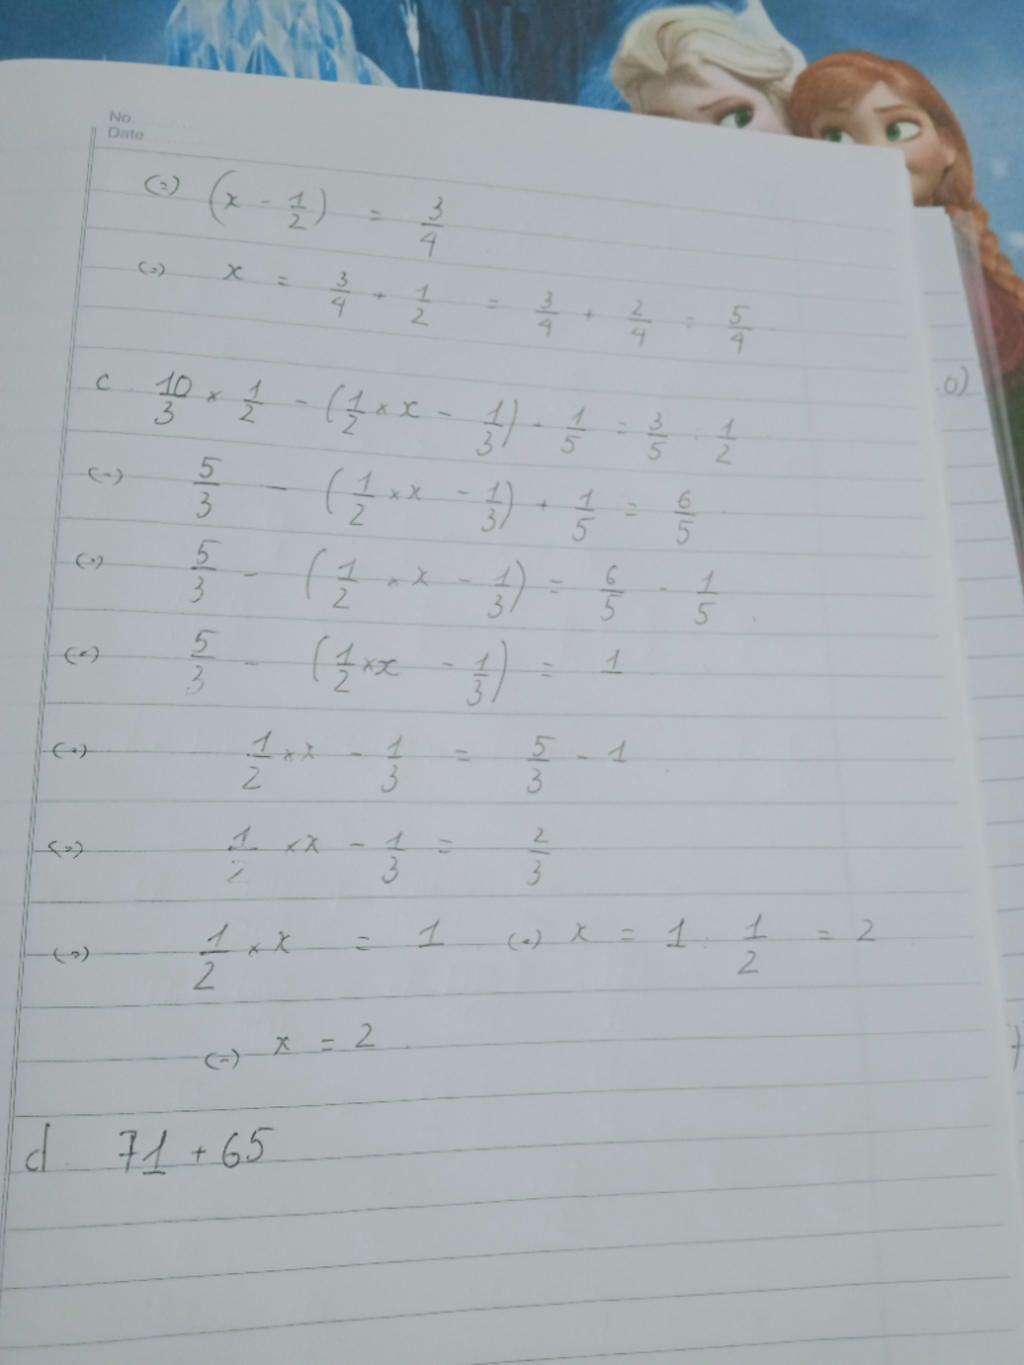 No
Date
(=) (x - 1/2) = 3/4
(=) x = 3/4 + 1/2 = 3/4 + 2/4 = 5/4
c 10/3 × 1/2 - (1/2 × x - 1/3) - 1/5 = 3/5 : 1/2
(=) 5/3 - (1/2 × x - 1/3) + 1/5 = 6/5
(=) 5/3 - (1/2 × x - 1/3) = 6/5 - 1/5
(=) 5/3 - (1/2 × x - 1/3) = 1
(=) 1/2 × x - 1/3 = 5/3 - 1
(=) 1/2 × x - 1/3 = 2/3
(=) 1/2 × x = 1 (=) x = 1 : 1/2 = 2
(=) x = 2
d. 71 + 65